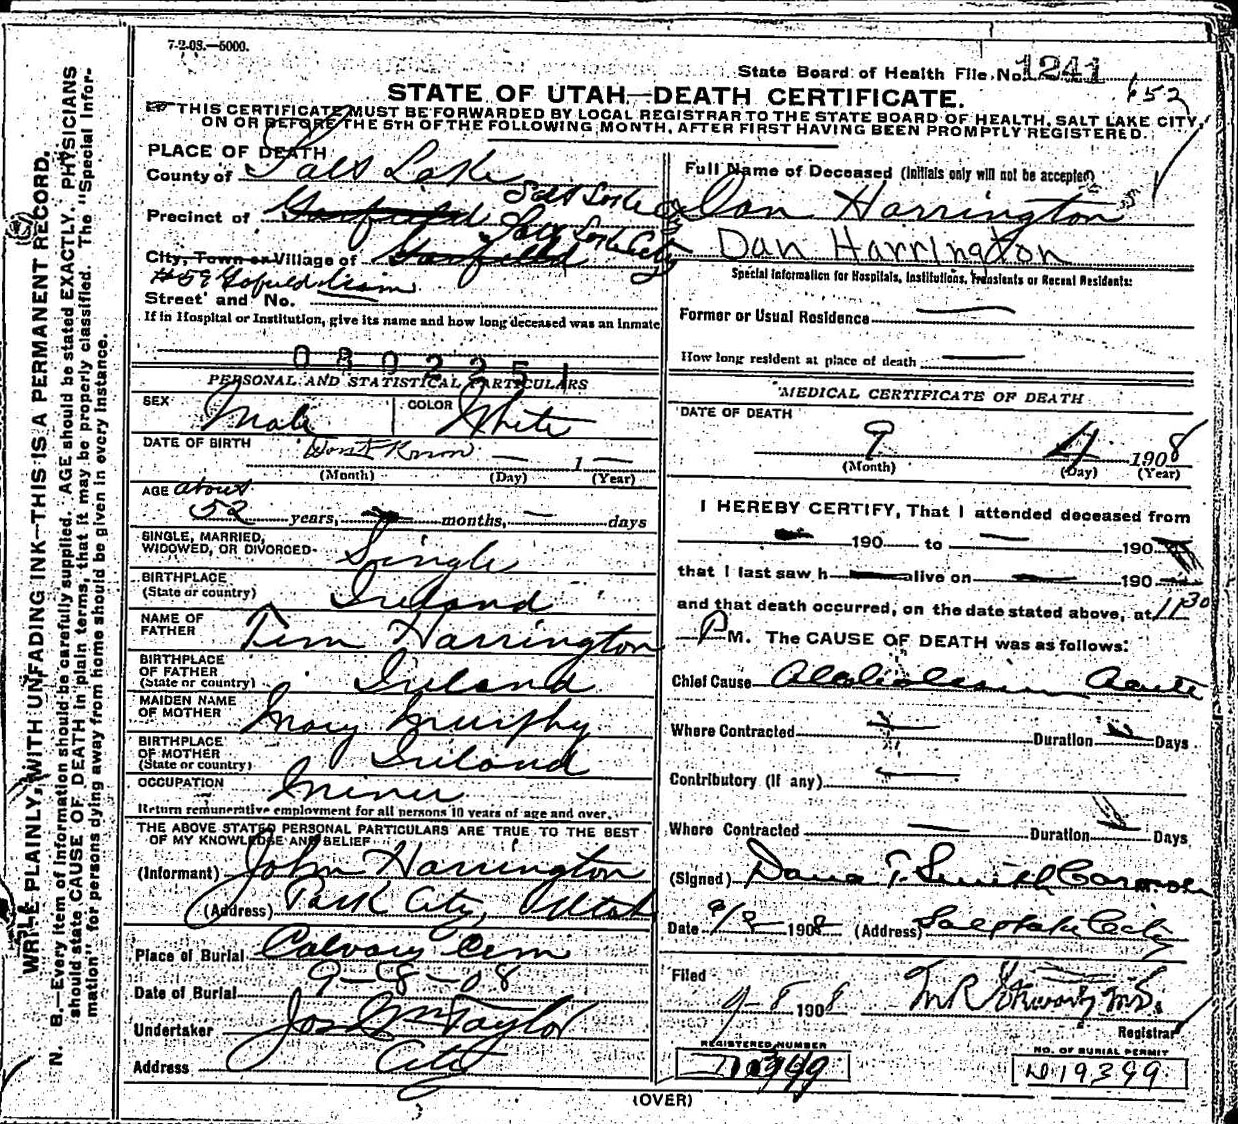 7-2-08.—5000.
State Board of Health File No. 1241
652
STATE OF UTAH—DEATH CERTIFICATE.
THIS CERTIFICATE MUST BE FORWARDED BY LOCAL REGISTRAR TO THE STATE BOARD OF HEALTH, SALT LAKE CITY,
ON OR BEFORE THE 5TH OF THE FOLLOWING MONTH, AFTER FIRST HAVING BEEN PROMPTLY REGISTERED.
WRITE PLAINLY, WITH UNFADING INK—THIS IS A PERMANENT RECORD.
N. B.—Every item of information should be carefully supplied. AGE should be stated EXACTLY. PHYSICIANS
should state CAUSE OF DEATH in plain terms, that it may be properly classified. The "Special Infor-
mation" for persons dying away from home should be given in every instance.
PLACE OF DEATH
County of Salt Lake
Salt Lake
Precinct of Garfield
Salt Lake City
City, Town or Village of Garfield
#59
Street and No.
If in Hospital or Institution, give its name and how long deceased was an inmate
0802251
PERSONAL AND STATISTICAL PARTICULARS
SEX Male COLOR White
DATE OF BIRTH Dont Know — 1 —
(Month) (Day) (Year)
AGE about
52 years, — months, — days
SINGLE, MARRIED,
WIDOWED, OR DIVORCED Single
BIRTHPLACE
(State or country) Ireland
NAME OF
FATHER Tim Harrington
BIRTHPLACE
OF FATHER
(State or country) Ireland
MAIDEN NAME
OF MOTHER Mary Murphy
BIRTHPLACE
OF MOTHER
(State or country) Ireland
OCCUPATION Miner
Return remunerative employment for all persons 10 years of age and over.
THE ABOVE STATED PERSONAL PARTICULARS ARE TRUE TO THE BEST
OF MY KNOWLEDGE AND BELIEF
(Informant) John Harrington
(Address) Park City, Utah
Place of Burial Calvary Cem
Date of Burial 9-8-08
Undertaker Jos Wm Taylor
Address City
Full Name of Deceased (Initials only will not be accepted)
Dan Harrington
Dan Harrington
Special Information for Hospitals, Institutions, Transients or Recent Residents:
Former or Usual Residence —
How long resident at place of death —
MEDICAL CERTIFICATE OF DEATH
DATE OF DEATH
9 4 1908
(Month) (Day) (Year)
I HEREBY CERTIFY, That I attended deceased from
— 190 to — 190
that I last saw h— alive on — 190—
and that death occurred, on the date stated above, at 11 30
P M. The CAUSE OF DEATH was as follows:
Chief Cause Alcoholism Acute
Where Contracted — Duration — Days
Contributory (if any) —
Where Contracted — Duration — Days
(Signed) Dana T. Smith Coroner
Date 9/8 1908 (Address) Salt Lake City
Filed
9-8 1908 M R Stewart, M.D.
Registrar
REGISTERED NUMBER
NO. OF BURIAL PERMIT
N 19399
(OVER)